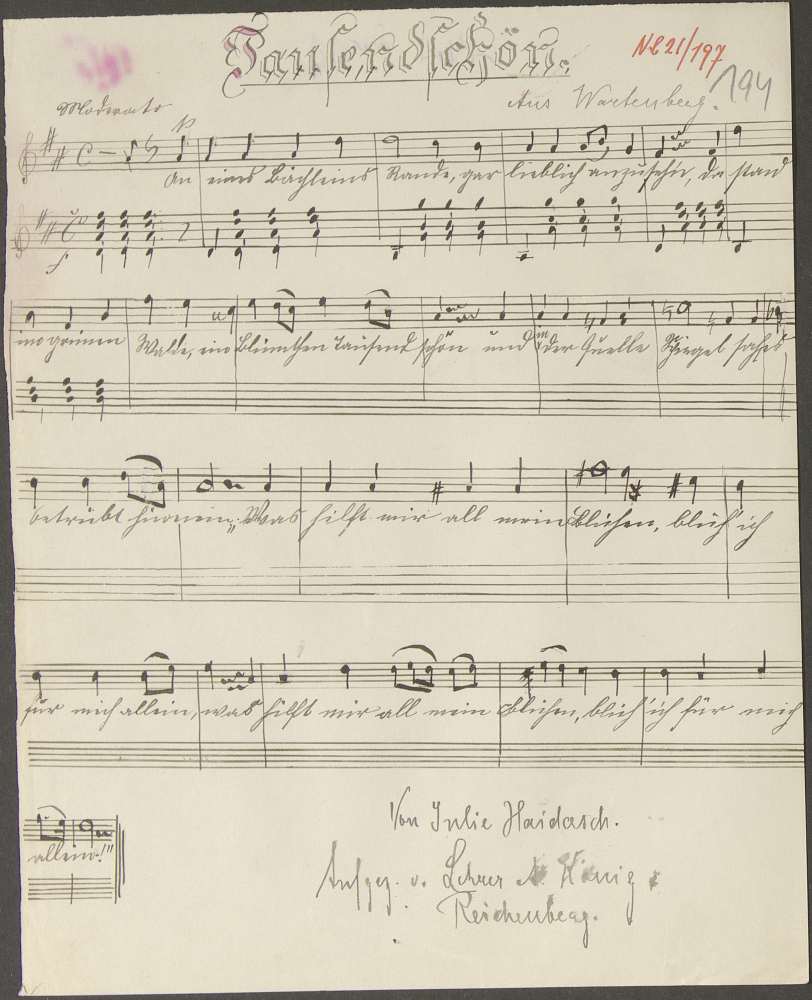 Tausendschön.
Nl 21/197
194
Aus Wartenberg.
Moderato
p
An eines Bächleins Rande, gar lieblich anzuseh'n, da stand
f
im grünen Walde, ein Blümchen Tausendschön und in der Quelle Spiegel sah es
betrübt hinein: "Was hilft mir all mein Blühen, blüh' ich
für mich allein, was hilft mir all mein Blühen, blüh' ich für mich
allein!"
Von Julie Haidasch.
Aufgez. v. Lehrer A. König
Reichenberg.